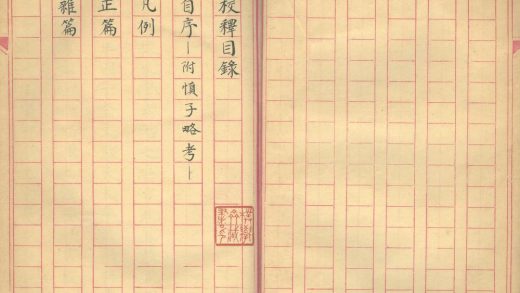 校釋目錄
自序—附慎子略考—
凡例
正篇
雜篇